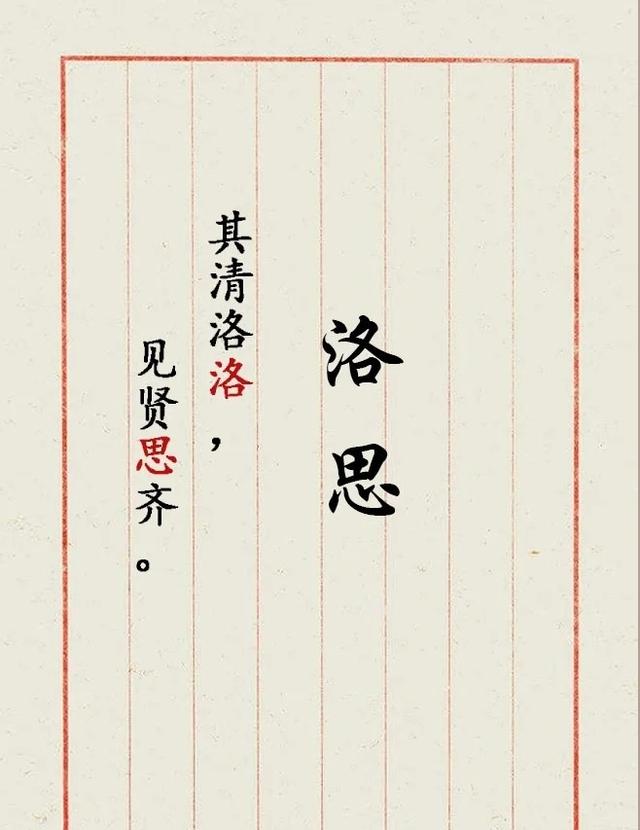 洛思
其清洛洛，
见贤思齐。